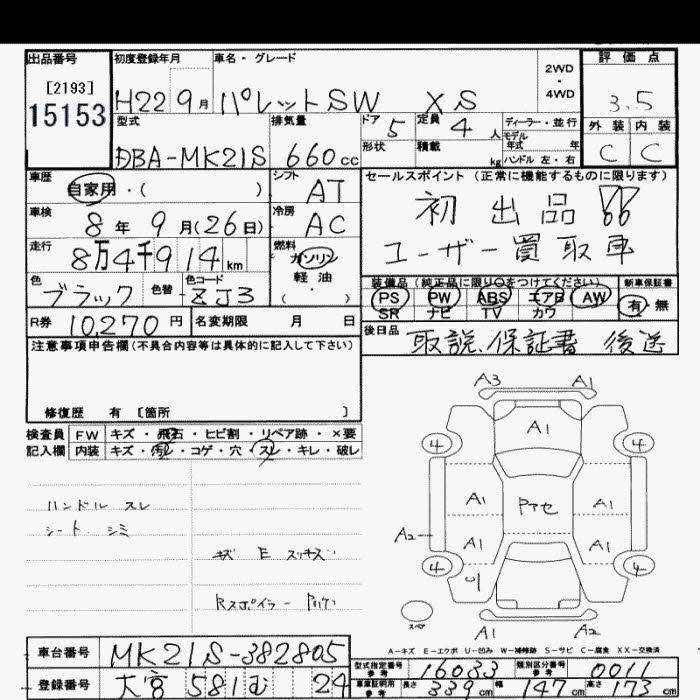 出品番号
[2193]
15153
初度登録年月
H22 9月
車名・グレード
パレットSW XS
2WD
・
4WD
評価点
3.5
型式
DBA-MK21S
排気量
660cc
ドア
5
定員
4人
形状
積載
kg
ディーラー・並行
モデル年式 年
ハンドル 左・右
外装 内装
C C
車歴
自家用・( )
シフト
AT
車検
8年9月(26日)
冷房
AC
走行
8万4千914km
燃料
ガソリン
軽油
(・)
色
ブラック
色替
色コード
ZJ3
セールスポイント(正常に機能するものに限ります)
初出品!!
ユーザー買取車
装備品(純正品に限り○をつけてください)
新車保証書
PS PW ABS エアB AW
SR ナビ TV カワ
有・無
R券 10,270円
名変期限 月 日
後日品
取説、保証書 後送
注意事項申告欄(不具合内容等は具体的に記入して下さい)
修復歴 有 [箇所 ]
検査員
記入欄
FW キズ・飛石・ヒビ割・リペア跡・×要
内装 キズ・汚レ・コゲ・穴・スレ・キレ・破レ
ハンドル スレ
シート シミ
キズ E スリキズ
Rスポイラー
A3 A1
A1
4 4
A1 Pアセ A1
A2
A1 A1
4 4
スペア
A1 A2
A-キズ E-エクボ U-凹み W-補修跡 S-サビ C-腐食 XX-交換済
車台番号 MK21S-382805
登録番号 大宮 581 む 24
型式指定番号 参考 16033
類別区分番号 参考 0011
車庫証明用 参考 長さ 339cm 幅 147cm 高さ 173cm